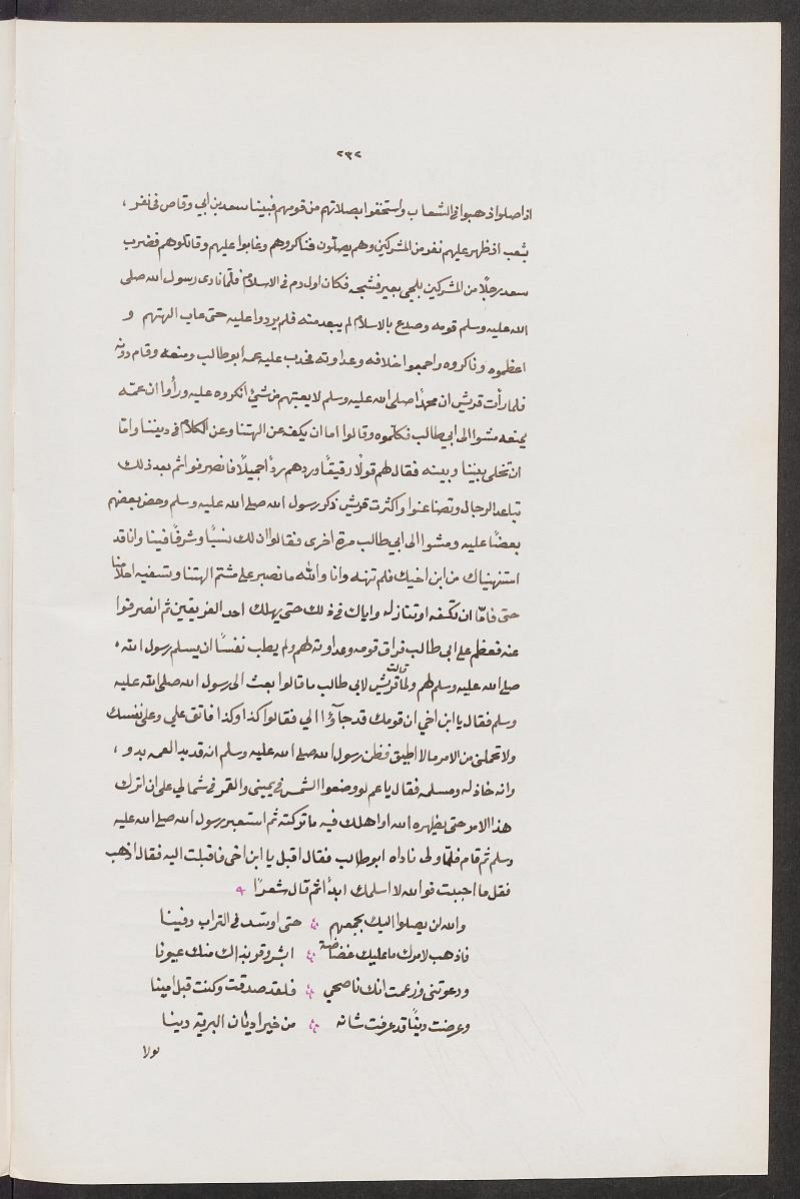 ٢٣٢
اذا صلوا ذهبوا في الشعاب واستخفوا بصلاتهم من قومهم فبينا سعد بن ابي وقاص في نفر ،
بشعب اذ ظهر عليهم نفر من المشركين وهم يصلون فناكروهم وعابوا عليهم وقاتلوهم فضرب
سعد رجلًا من المشركين بلحي بعير فشجه فكان اول دم في الاسلام فلما نادى رسول الله صلى
الله عليه وسلم قومه وصدع بالاسلام لم يبعد منه فلم يردوا عليه حتى عاب الهتهم و
اعظموه وناكروه واجمعوا خلافه وعداوته فحدب عليه عمه ابو طالب ومنعه وقام دونه
فلما رأت قريش ان محمدًا صلى الله عليه وسلم لا يعتبهم من شيئ انكروه عليه ورأوا ان عمته
يمنعه مشوا الى ابي طالب فكلموه وقالوا اما ان يكفه عن الهتنا وعن الكلام في ديننا واما
ان تخلى بيننا وبينه فقال لهم قولًا رقيقًا وردهم ردًا جميلًا فانصرفوا ثم بعد ذلك
تباعد الرجال وتضاغنوا واكثرت قريش ذكر رسول الله صلى الله عليه وسلم وحض بعضهم
بعضًا عليه ومشوا الى ابي طالب مرة اخرى فقالوا ان لك نسبًا وشرفًا فينا وانا قد
استنهيناك من ابن اخيك فلم تنهه وانا والله ما نصبر على مشتم الهتنا وتسفيه احلامنا
حتى فامّا ان تكفه او تنازله واياك في ذلك حتى يهلك احد الفريقين ثم انصرفوا
عنه فعظم على ابي طالب فراق قومه وعداوته لهم ولم يطب نفسًا ان يسلم رسول الله
صلى الله عليه وسلم لهم ولما قالت قريش لابي طالب ما قالوا بعث الى رسول الله صلى الله عليه
وسلم فقال يا ابن اخي ان قومك قد جاؤا الي فقالوا كذا وكذا فاتق علي وعلى نفسك
ولا تحملني من الامر ما لا اطيق فظن رسول الله صلى الله عليه وسلم انه قد بد العمه بدو ،
وانه خاذله ومسلمه فقال يا عم لو وضعوا الشمس في يميني والقمر في شمالي على ان اترك
هذا الامر حتى يظهره الله او اهلك فيه ما تركته ثم استعبر رسول الله صلى الله عليه
وسلم ثم قام فلما ولى ناداه ابو طالب فقال اقبل يا ابن اخي فاقبلت اليه فقال اذهب
فقل ما احببت فوالله لا اسلمك ابدًا ثم قال شعرًا
والله لن يصلوا اليك بجمعهم حتى اوسّد في التراب دفينا
فاذهب لامرك ما عليك غضاضة ابشر وقر بذاك منك عيونا
ودعوتنى وزعمت انك ناصحي فلقد صدقت وكنت قبل امينا
وعرضت دينًا قد عرفت شانه من خير اديان البرية دينا
لولا